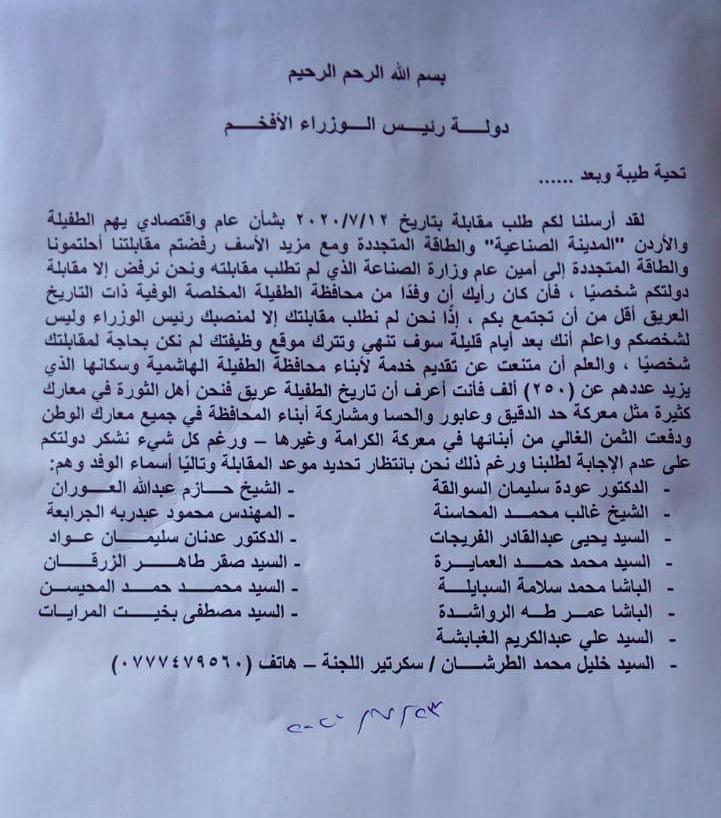 بسم الله الرحم الرحيم
دولـــة رئيـــس الـــوزراء الأفخـــم
تحية طيبة وبعد ......
لقد أرسلنا لكم طلب مقابلة بتاريخ ٢٠٢٠/٧/١٢ بشأن عام واقتصادي يهم الطفيلة
والأردن "المدينة الصناعية" والطاقة المتجددة ومع مزيد الأسف رفضتم مقابلتنا أحلتمونا
والطاقة المتجددة إلى أمين عام وزارة الصناعة الذي لم تطلب مقابلته ونحن نرفض إلا مقابلة
دولتكم شخصيًا ، فأن كان رأيك أن وفدًا من محافظة الطفيلة المخلصة الوفية ذات التاريخ
العريق أقل من أن تجتمع بكم ، إذًا نحن لم نطلب مقابلتك إلا لمنصبك رئيس الوزراء وليس
لشخصكم واعلم أنك بعد أيام قليلة سوف تنهي وتترك موقع وظيفتك لم نكن بحاجة لمقابلتك
شخصيًا ، والعلم أن متنعت عن تقديم خدمة لأبناء محافظة الطفيلة الهاشمية وسكانها الذي
يزيد عددهم عن (٢٥٠) ألف فأنت أعرف أن تاريخ الطفيلة عريق فنحن أهل الثورة في معارك
كثيرة مثل معركة حد الدقيق وعابور والحسا ومشاركة أبناء المحافظة في جميع معارك الوطن
ودفعت الثمن الغالي من أبنائها في معركة الكرامة وغيرها – ورغم كل شيء نشكر دولتكم
على عدم الإجابة لطلبنا ورغم ذلك نحن بانتظار تحديد موعد المقابلة وتاليًا أسماء الوفد وهم:
- الدكتور عودة سليمان السوالقة - الشيخ حـــازم عبدالله العـــوران
- الشيخ غالب محمـد المحاسنة - المهندس محمود عبدربه الجرابعة
- السيد يحيى عبدالقادر الفريجات - الدكتور عدنان سليمـــان عـــواد
- السيد محمد حمـد العمايـرة - السيد صقر طاهـــر الزرقـــان
- الباشا محمد سلامة السبايلـة - السيد محمـــد حمد المحيسـن
- الباشا عمـر طـه الرواشدة - السيد مصطفى بخيـت المرايـات
- السيد علي عبدالكريم الغبابشة
- السيد خليل محمد الطرشـــان / سكرتير اللجنة – هاتف (٠٧٧٧٤٧٩٥٦٠)